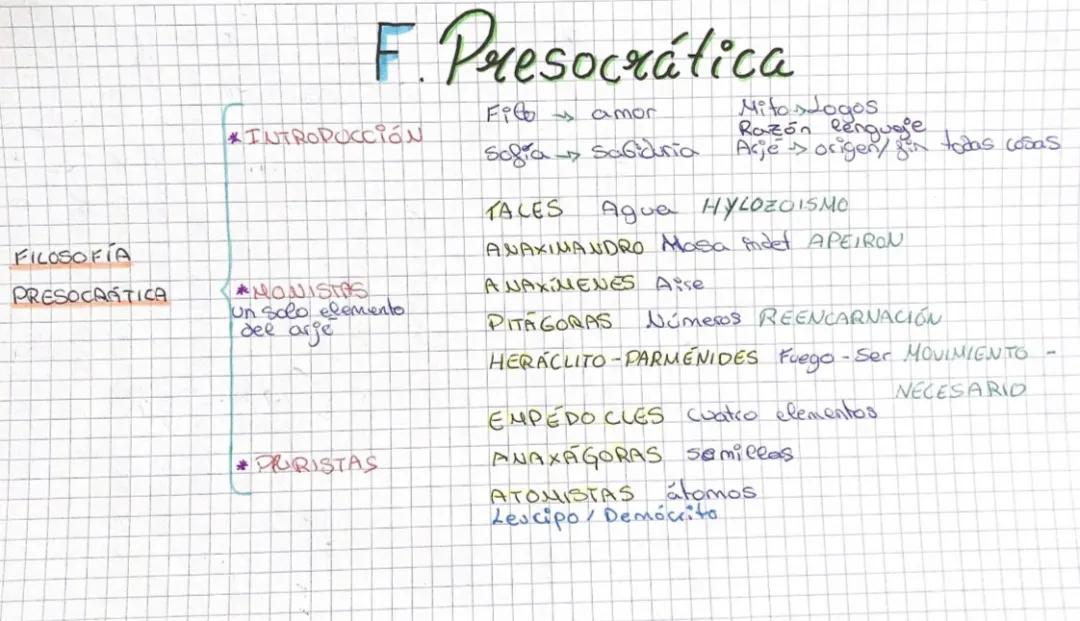 F. Presocrática
* INTRODUCCIÓN
Filo → amor
Sofía → Sabiduría
Mito → Logos
Razón lenguaje
Arjé → origen/fin todas cosas
FILOSOFÍA
PRESOCRÁTICA
* MONISTAS
un solo elemento
del arjé
TALES Agua HYLOZOISMO
ANAXIMANDRO Masa indet APEIRON
ANAXÍMENES Aire
PITÁGORAS Números REENCARNACIÓN
HERÁCLITO - PARMÉNIDES Fuego - Ser MOVIMIENTO -
NECESARIO
* PLURISTAS
EMPÉDOCLES cuatro elementos
ANAXÁGORAS semillas
ATOMISTAS átomos
Leucipo / Demócrito